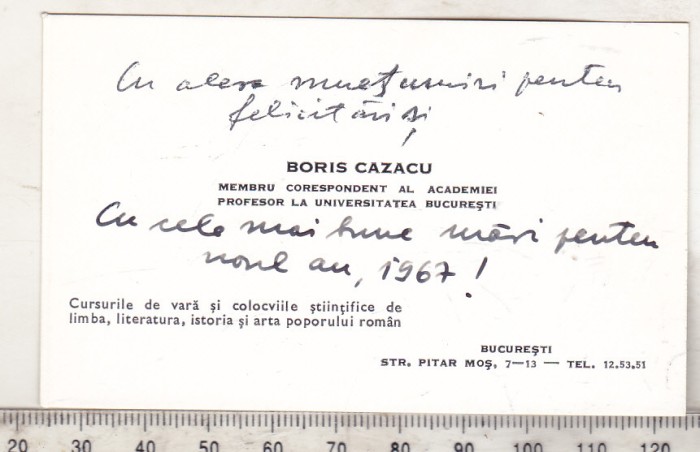 Cu alese mulţumiri pentru
felicitări şi
BORIS CAZACU
MEMBRU CORESPONDENT AL ACADEMIEI
PROFESOR LA UNIVERSITATEA BUCUREŞTI
Cu cele mai bune urări pentru
noul an, 1967!
Cursurile de vară şi colocviile ştiinţifice de
limba, literatura, istoria şi arta poporului român
BUCUREŞTI
STR. PITAR MOŞ, 7—13 — TEL. 12.53.51
20 30 40 50 60 70 80 90 100 110 120